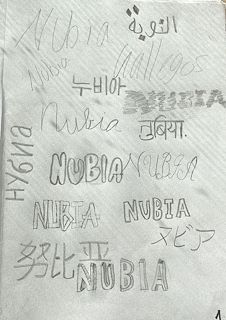 Nubia
النوبة
Nubia
Gallegos
누비아
NUBIA
Nubia
नुबिया.
Нубиа
NUBIA
NUBIA
NUBIA
NUBIA
ヌビア
努比亚
NUBIA
1